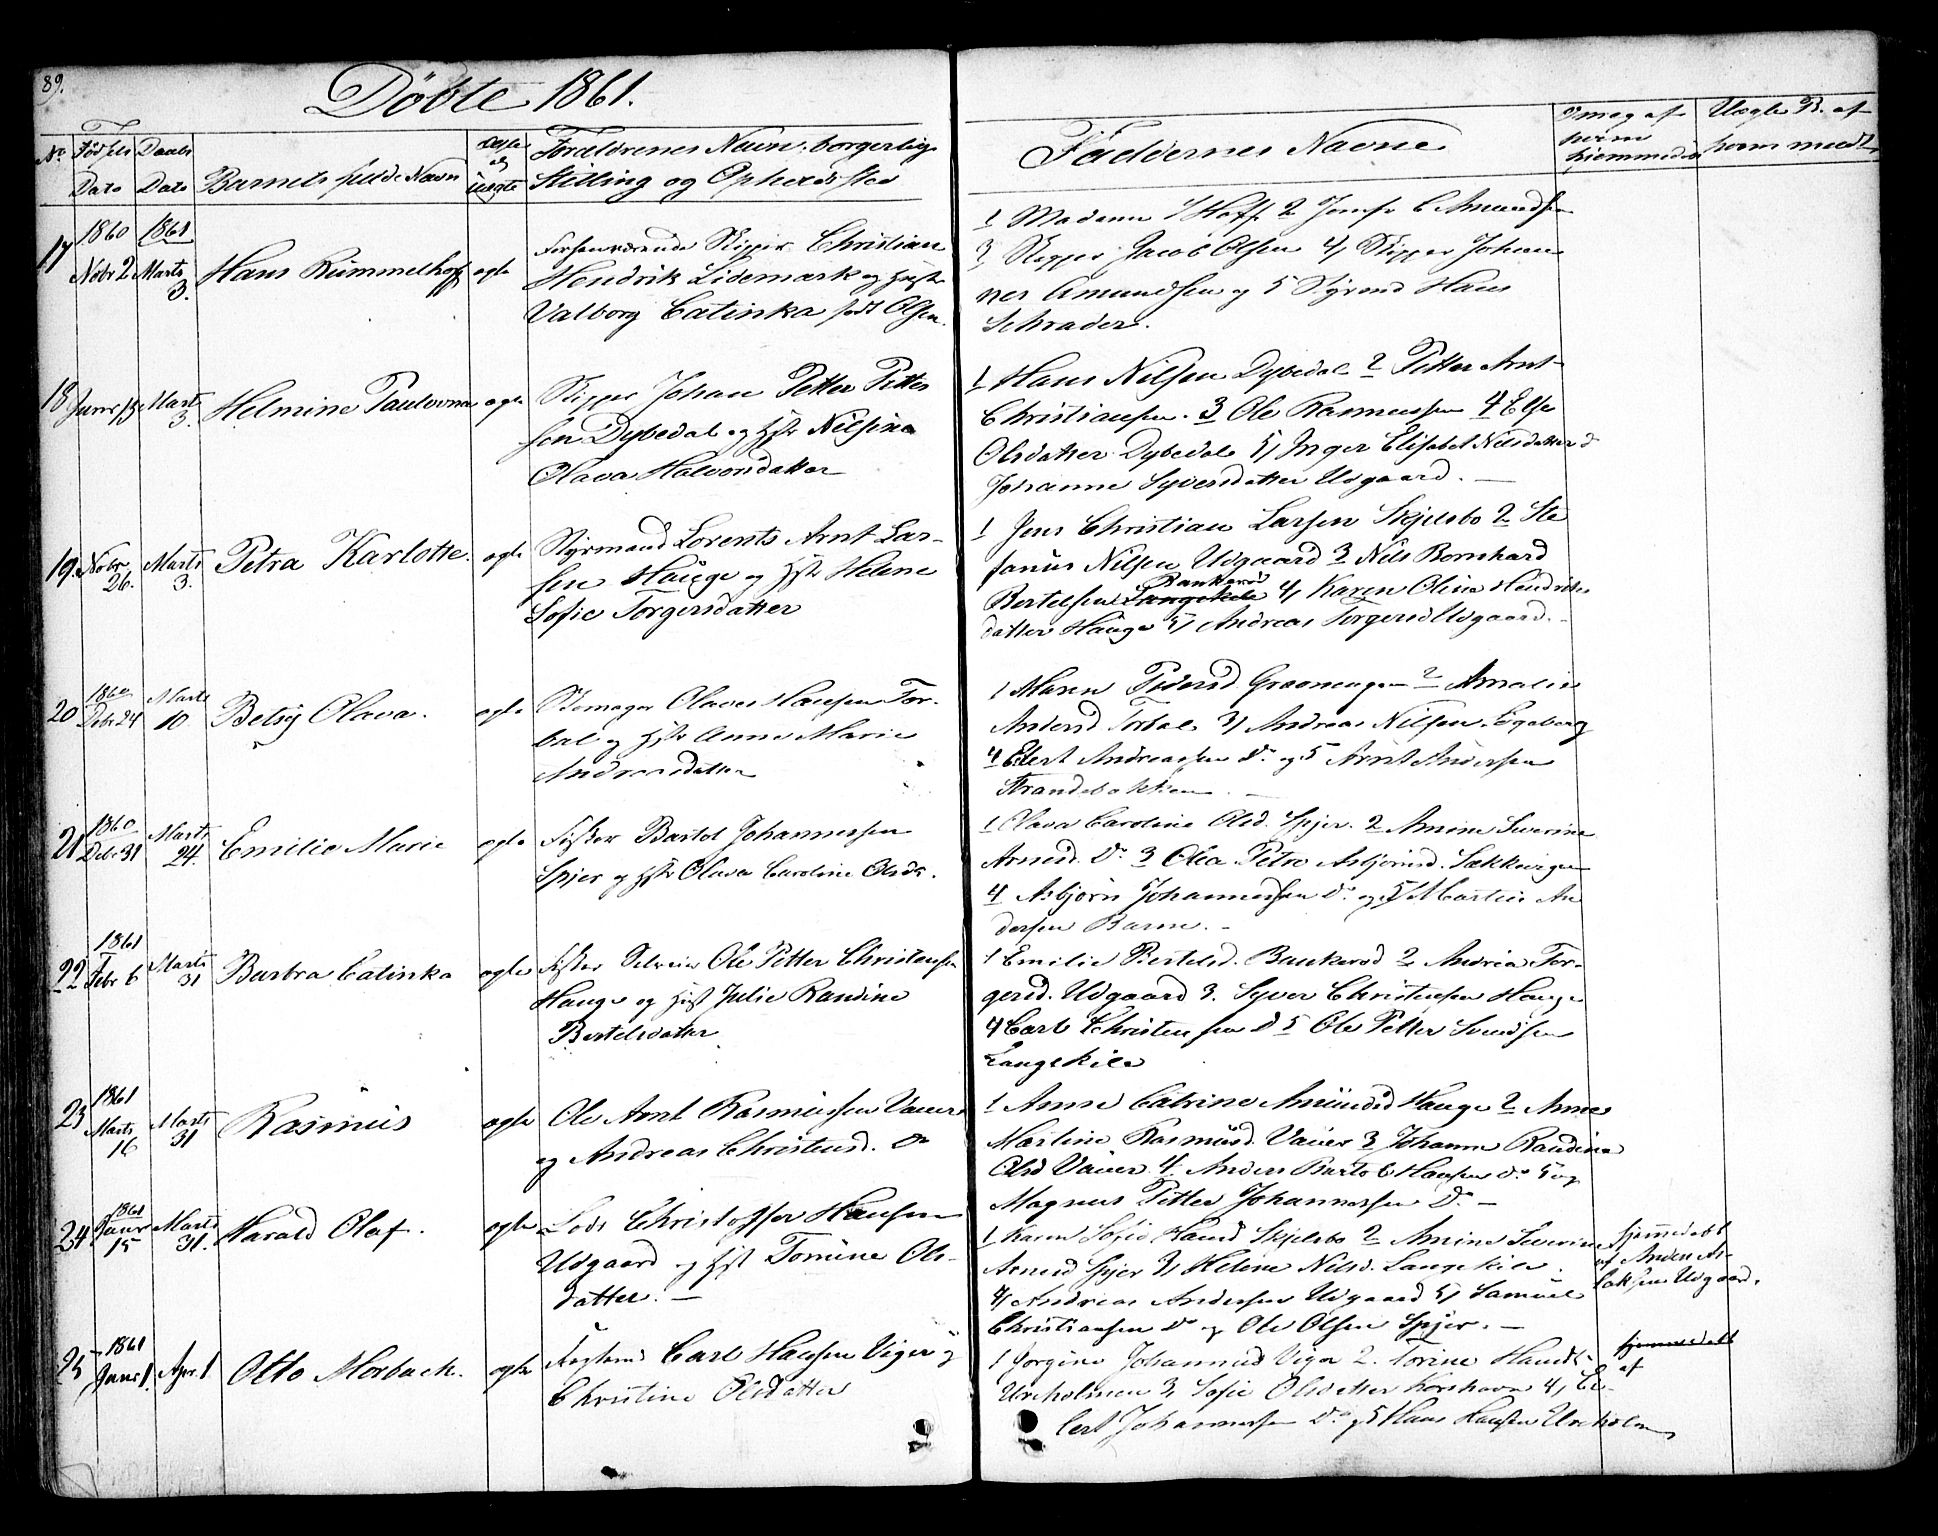 89.
Döbte 1861.
No Födsels Dato Daabs Dato Barnets fulde Navn ægte og uægte Forældrenes Navn, borgerlig Stilling og Opholdssted
Faddernes Navne
hvem hjemmedøbt
17 1860 Nobr 2 1861 Marts 3. Hans Rummelhoff ægte
Forhenværende Skipper Christian
Hendrik Lidemark og Hustr
Valborg Catinka født Olsen.
1 Madame Hoff 2 Jomfr C Amundsen
3 Skipper Jacob Olsen 4, Skipper Johan
nes Amundsen og 5 Styrmd Hans
Schrader.
18 Janr 19 Marts 3. Helmine Paulovna ægte
Skipper Johan Petter Petter
sen Dybedal og Hstr Nilsina
Olava Halvorsdatter
1 Hans Nilsen Dybedal 2 Petter Arnt
Christiansen. 3 Ole Rasmussen 4 Else
Olsdatter Dybedal 5, Inger Elisabet Nilsdatter d
Johanne Syversdatter Udgaard. —
19. Nobr 26. Marts 3. Petra Karlotte. ægte
Styrmand Lorents Arnt Lar-
sen Hauge og Hstr Helene
Sofie Torgersdatter
1 Jens Christian Larsen Skjelsbo 2 Ste
fanus Nilsen Udgaard 3 Nils Bernhard
Bertelsen Langekile Bankerød 4, Karen Oline Hendriks
datter Hauge 5, Andreas Torgersd Udgaard. -
20 1860 Debr 24 Marts 10. Betsy Olava. ægte
Skomager Olaves Hansen Tor-
bal og Hstr Anne Marie
Andreasdatter
1 Maren Pedersd. Graamengen 2 Amalie
Andersd Torbal 3, Andreas Nilsen Egeberg
4 Edert Andreassen Do og 5 Arnt Andersen
Strandebakken. —
21 1860 Debr 31 Marts 24. Emilie Marie ægte
Fisker Bartol Johannessen
Spjer og Hstr Olava Caroline Olsdr.
1 Olava Caroline Olsd. Spjer. 2 Amine Severine
Arnesd. Do 3 Olea Petra Asbjørnsd. Sækkevigen
4 Asbjørn Johannessen Do og 5 Martin An
dersen Barm. -
22 1861 Febr 6 Marts 31 Barbra Catinka ægte
Fisker Selveier Ole Petter Christensen
Hauge og Hust Julie Randine
Bertelsdatter
1 Emilie Bertelsd. Bankerød 2 Andrea Tor-
gersd. Udgaard 3. Syver Christensen Hauge
4 Carl Christensen Do 5 Ole Petter Svendsen
Langekile
23 1861 Marts 16 Marts 31 Rasmus ægte
Ole Arnt Rasmussen Vauer
og Andrea Christensd. Do
1 Anne Catrine Amundsd Hauge 2 Anne
Martine Rasmusd. Vauer 3 Johanne Randine
Olsd Vauer 4. Anders Bartol Hansen Do 5 og
Magnus Petter Johannessen Do —
24 1861 Janr 15 Marts 31. Harald Olaf. ægte
Lods Christoffer Hansen
Udgaard og Hst Tomine Ols-
datter. —
1 Karen Sofie Hansd Skjelsbo 2 Amine Severine
Arnesd Spjer 3, Helene Nilsd. Langekile.
4, Andreas Andersen Udgaard 5, Samuel
Christiansen Do og Ole Olsen Spjer. —
hjemmedøbt
af Anders As-
laksen Udgaard.
25 1861 Janr 1. Apr. 1. Otto Morbach. ægte
Fergemd Carl Hansen Viger og
Christine Olsdatter
1 Jorgine Johannesd Viger 2. Torine Hansd.
Ureholmen 3, Sofie Olsdatter Korshavn 4, El-
lert Johannessen Do og 5 Hans Hansen Ureholm
hjemmedøbt
af